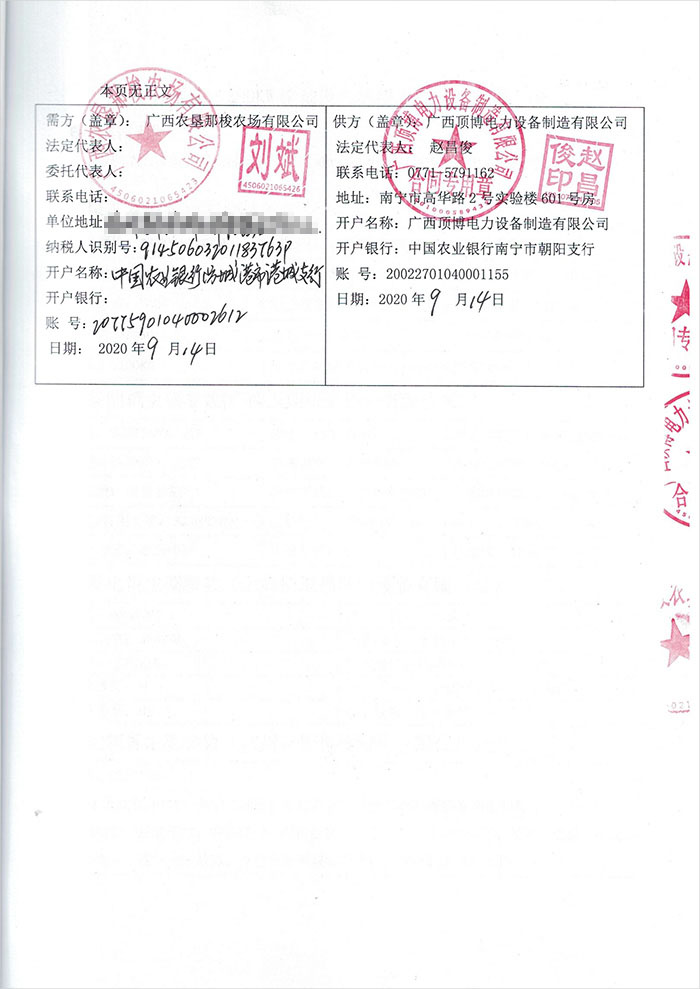 本页无正文
需方（盖章）：广西农垦那梭农场有限公司
法定代表人：
委托代表人：
联系电话：
单位地址
纳税人识别号：91450603201183763P
开户名称：中国农业银行防城港市港城支行
开户银行：
账 号：20775901040002612
日期： 2020 年 9 月 14 日
刘斌
4506021065426
4506021065423
供方（盖章）：广西顶博电力设备制造有限公司
法定代表人： 赵昌俊
联系电话：0771-5791162
地址：南宁市高华路 2 号实验楼 601 号房
开户名称：广西顶博电力设备制造有限公司
开户银行：中国农业银行南宁市朝阳支行
账 号：20022701040001155
日期：2020 年 9 月 14 日
广西顶博电力设备制造有限公司
合同专用章
赵昌俊印